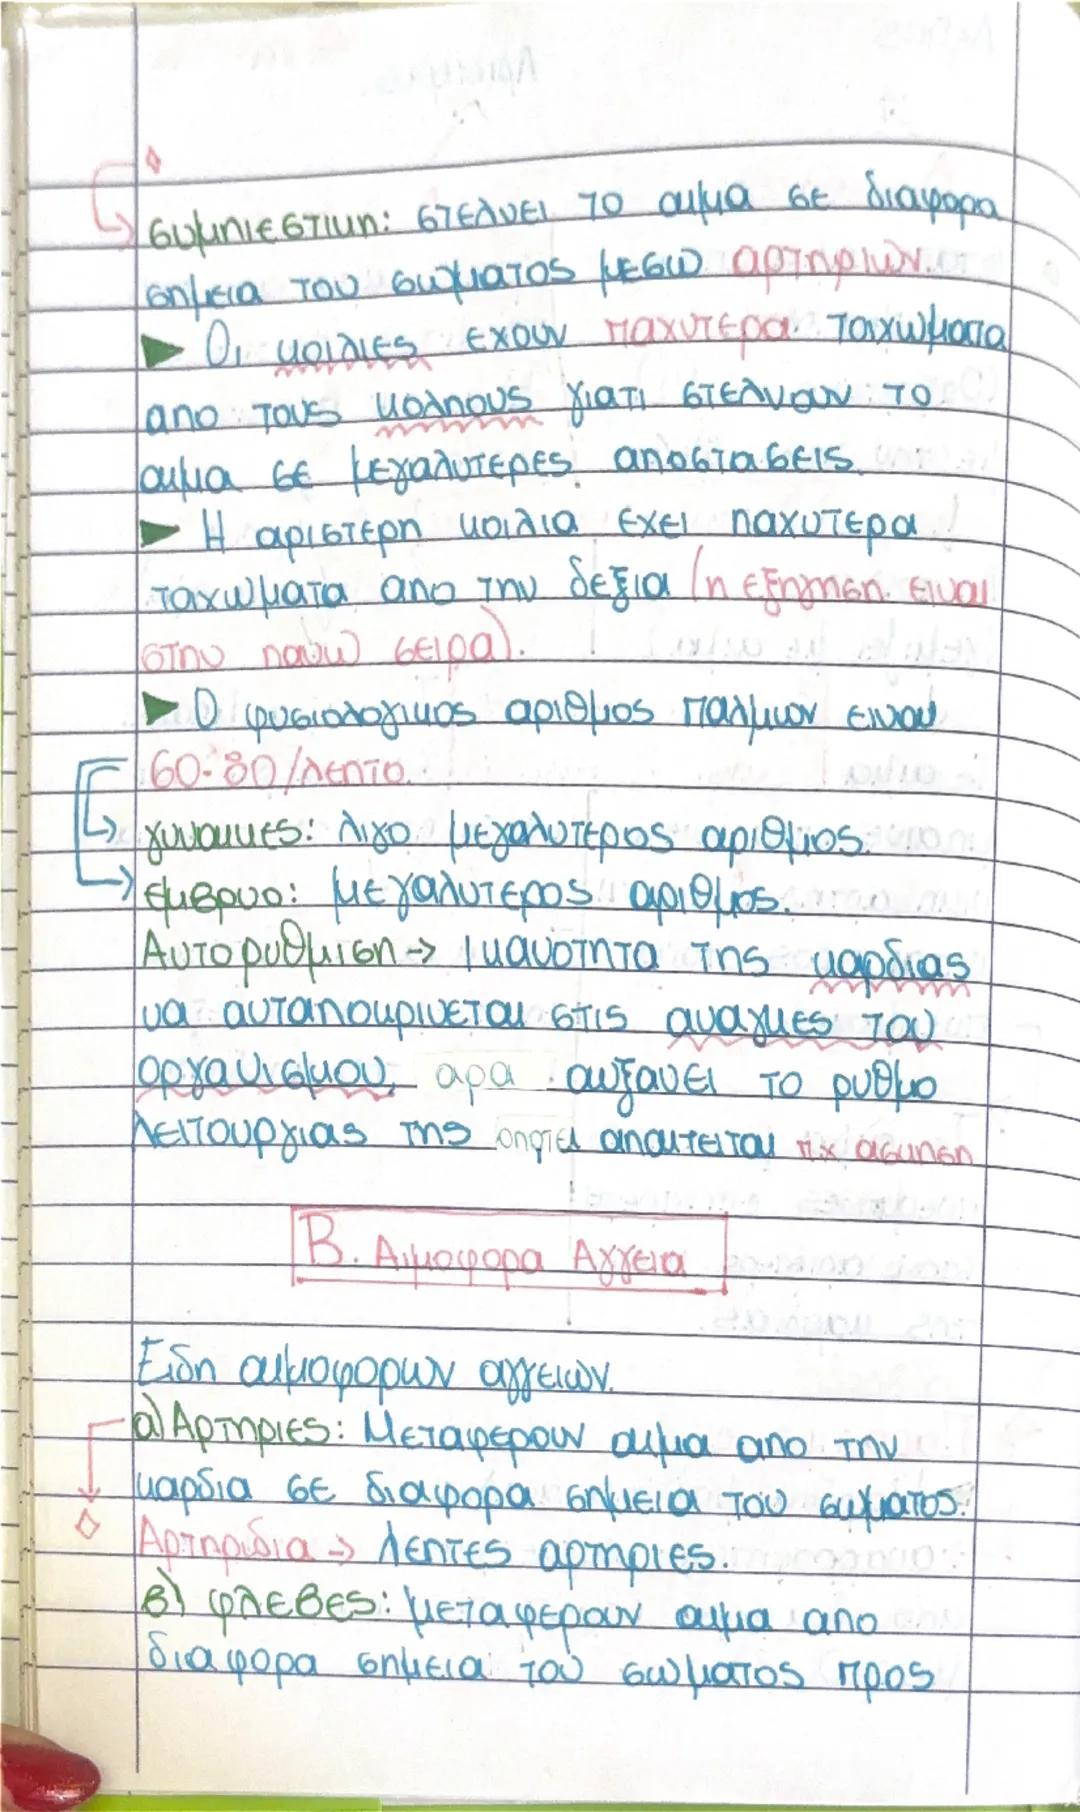 συμπιεστικη: στελνει το αιμα σε διαφορα
σημεια του σωματος μεσω αρτηριών.
▶ Οι κοιλιες εχουν παχυτερα τοιχωματα
απο τους κολπους γιατι στελνουν το
αιμα σε μεγαλυτερες αποστασεις.
▶ Η αριστερη κοιλια εχει παχυτερα
ταχωματα απο την δεξια (η εξηγηση ειναι
στην πανω σειρα).
▶ Ο φυσιολογικος αριθμος παλμων ειναι
60-80/λεπτο.
γυναικες: λιγο μεγαλυτερος αριθμος.
εμβρυο: μεγαλυτερος αριθμος.
Αυτορυθμιση → ικανοτητα της καρδιας
να ανταποκρινεται στις αναγκες του
οργανισμου, αρα αυξανει το ρυθμο
λειτουργιας της οπατε απαιτειται πχ ασκηση
Β. Αιμοφορα Αγγεια
Ειδη αιμοφορων αγγειών.
α) Αρτηριες: Μεταφερουν αιμα απο την
καρδια σε διαφορα σημεια του σωματος.
Αρτηριδια → λεπτες αρτηριες.
β) φλεβες: μεταφερουν αιμα απο
διαφορα σημεια του σωματος προς